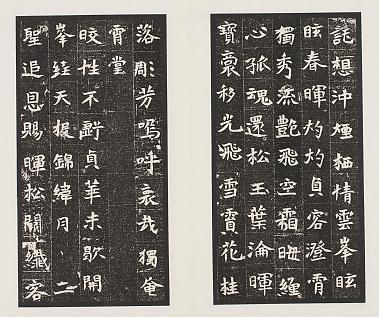 託想沖煙栖情雲峯眩
眩春暉灼灼貞容澄霄
獨秀流艷飛空霜晦纏
心孤魂還松玉葉淪暉
寶衮移光飛雪霣花桂
落彫芳嗚呼哀哉獨奄
霄堂
皎性不虧貞華未歇開
峯經天振錦緯月丶二
聖追恩賜暉松關纖客